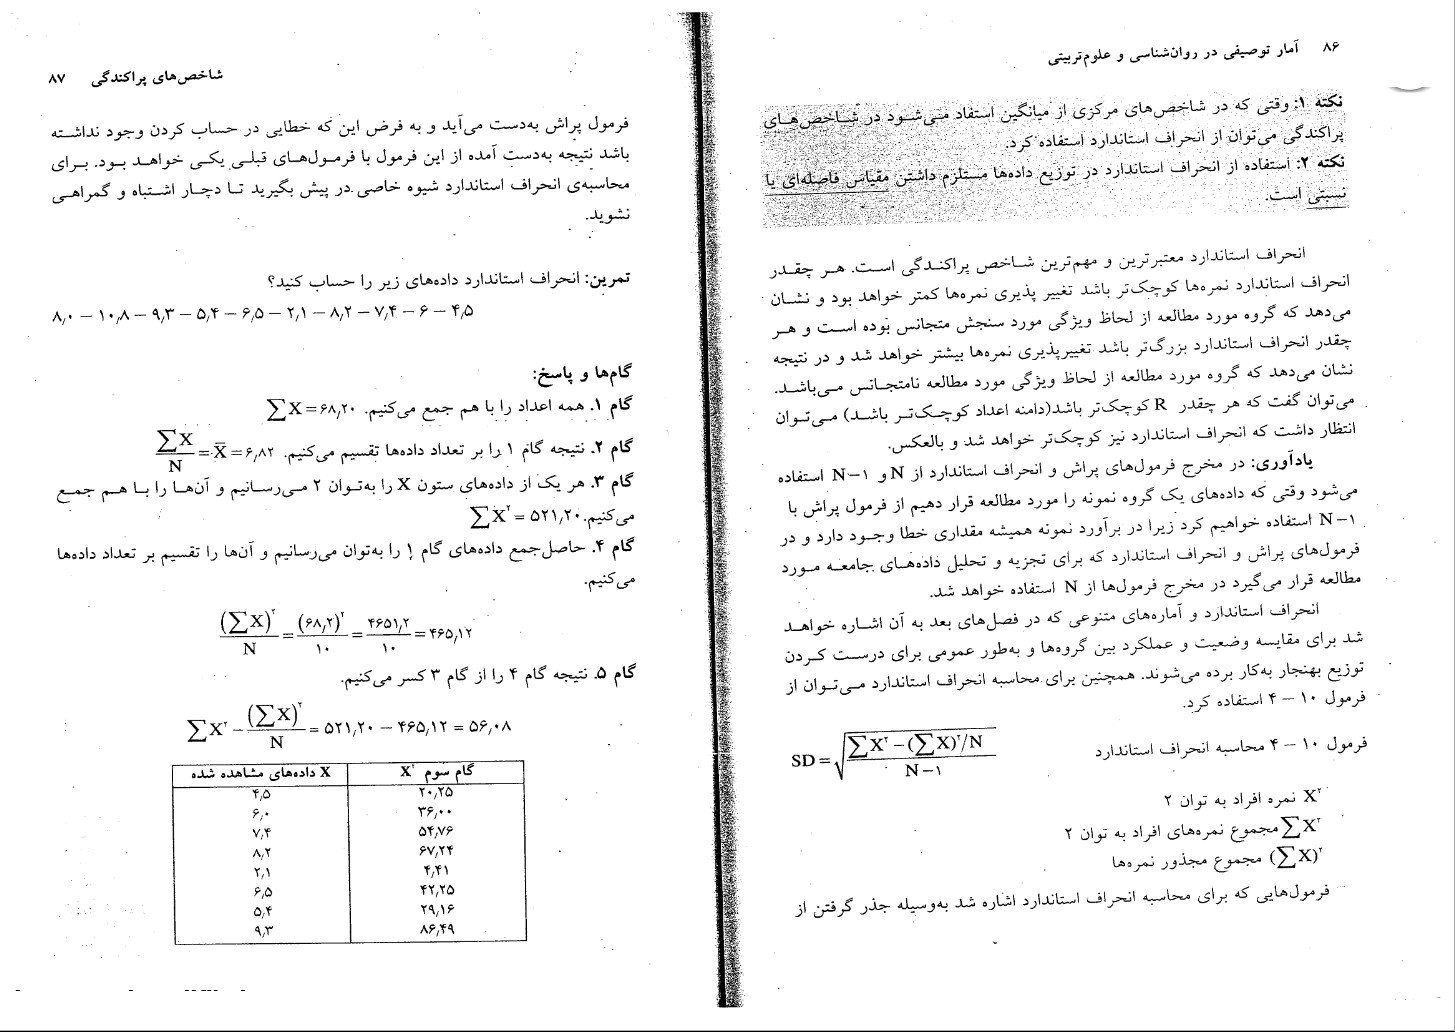 ۸۶ آمار توصیفی در روان‌شناسی و علوم‌تربیتی
نکته ۱: وقتی که در شاخص‌های مرکزی از میانگین استفاد می‌شود در شاخص‌های
پراکندگی می‌توان از انحراف استاندارد استفاده کرد.
نکته ۲: استفاده از انحراف استاندارد در توزیع داده‌ها مستلزم داشتن مقیاس فاصله‌ای یا
نسبتی است.
انحراف استاندارد معتبرترین و مهم‌ترین شاخص پراکندگی است. هر چقدر
انحراف استاندارد نمره‌ها کوچک‌تر باشد تغییر پذیری نمره‌ها کمتر خواهد بود و نشان
می‌دهد که گروه مورد مطالعه از لحاظ ویژگی مورد سنجش متجانس بوده است و هر
چقدر انحراف استاندارد بزرگ‌تر باشد تغییرپذیری نمره‌ها بیشتر خواهد شد و در نتیجه
نشان می‌دهد که گروه مورد مطالعه از لحاظ ویژگی مورد مطالعه نامتجانس می‌باشد.
می‌توان گفت که هر چقدر R کوچک‌تر باشد(دامنه اعداد کوچک‌تر باشد) می‌توان
انتظار داشت که انحراف استاندارد نیز کوچک‌تر خواهد شد و بالعکس.
یادآوری: در مخرج فرمول‌های پراش و انحراف استاندارد از N و N−۱ استفاده
می‌شود وقتی که داده‌های یک گروه نمونه را مورد مطالعه قرار دهیم از فرمول پراش با
N−۱ استفاده خواهیم کرد زیرا در برآورد نمونه همیشه مقداری خطا وجود دارد و در
فرمول‌های پراش و انحراف استاندارد که برای تجزیه و تحلیل داده‌های جامعه مورد
مطالعه قرار می‌گیرد در مخرج فرمول‌ها از N استفاده خواهد شد.
انحراف استاندارد و آماره‌های متنوعی که در فصل‌های بعد به آن اشاره خواهد
شد برای مقایسه وضعیت و عملکرد بین گروه‌ها و به‌طور عمومی برای درست کردن
توزیع بهنجار به‌کار برده می‌شوند. همچنین برای محاسبه انحراف استاندارد می‌توان از
فرمول ۱۰ − ۴ استفاده کرد.
فرمول ۱۰ − ۴ محاسبه انحراف استاندارد SD = √((∑X² − (∑X)²/N) / (N−۱))
X² نمره افراد به توان ۲
∑X² مجموع نمره‌های افراد به توان ۲
(∑X)² مجموع مجذور نمره‌ها
فرمول‌هایی که برای محاسبه انحراف استاندارد اشاره شد به‌وسیله جذر گرفتن از
شاخص‌های پراکندگی ۸۷
فرمول پراش به‌دست می‌آید و به فرض این که خطایی در حساب کردن وجود نداشته
باشد نتیجه به‌دست آمده از این فرمول با فرمول‌های قبلی یکی خواهد بود. برای
محاسبه‌ی انحراف استاندارد شیوه خاصی در پیش بگیرید تا دچار اشتباه و گمراهی
نشوید.
تمرین: انحراف استاندارد داده‌های زیر را حساب کنید؟
۸٫۰ − ۱۰٫۸ − ۹٫۳ − ۵٫۴ − ۶٫۵ − ۲٫۱ − ۸٫۲ − ۷٫۴ − ۶ − ۴٫۵
گام‌ها و پاسخ:
گام ۱. همه اعداد را با هم جمع می‌کنیم. ∑X = ۶۸٫۲۰
گام ۲. نتیجه گام ۱ را بر تعداد داده‌ها تقسیم می‌کنیم. ∑X/N = X̄ = ۶٫۸۲
گام ۳. هر یک از داده‌های ستون X را به‌توان ۲ می‌رسانیم و آن‌ها را با هم جمع
می‌کنیم. ∑X² = ۵۲۱٫۲۰
گام ۴. حاصل‌جمع داده‌های گام ۱ را به‌توان می‌رسانیم و آن‌ها را تقسیم بر تعداد داده‌ها
می‌کنیم.
(∑X)²/N = (۶۸٫۲)²/۱۰ = ۴۶۵۱٫۲/۱۰ = ۴۶۵٫۱۲
گام ۵. نتیجه گام ۴ را از گام ۳ کسر می‌کنیم.
∑X² − (∑X)²/N = ۵۲۱٫۲۰ − ۴۶۵٫۱۲ = ۵۶٫۰۸
X داده‌های مشاهده شده گام سوم X²
۴٫۵ ۲۰٫۲۵
۶٫۰ ۳۶٫۰۰
۷٫۴ ۵۴٫۷۶
۸٫۲ ۶۷٫۲۴
۲٫۱ ۴٫۴۱
۶٫۵ ۴۲٫۲۵
۵٫۴ ۲۹٫۱۶
۹٫۳ ۸۶٫۴۹